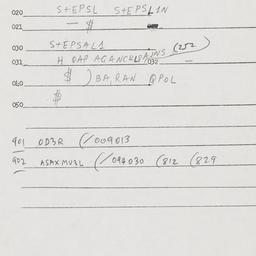 020 S+EPSL S+EPSL1N
021 — $
030 S+EPSAL1 (252
031 H OAP AGANCKLSAINS
032 —
040 $ ) BA,RAN @POL
050 $
901 OD3R (/009013
902 ASAXMU3L (/094030 (812 (829